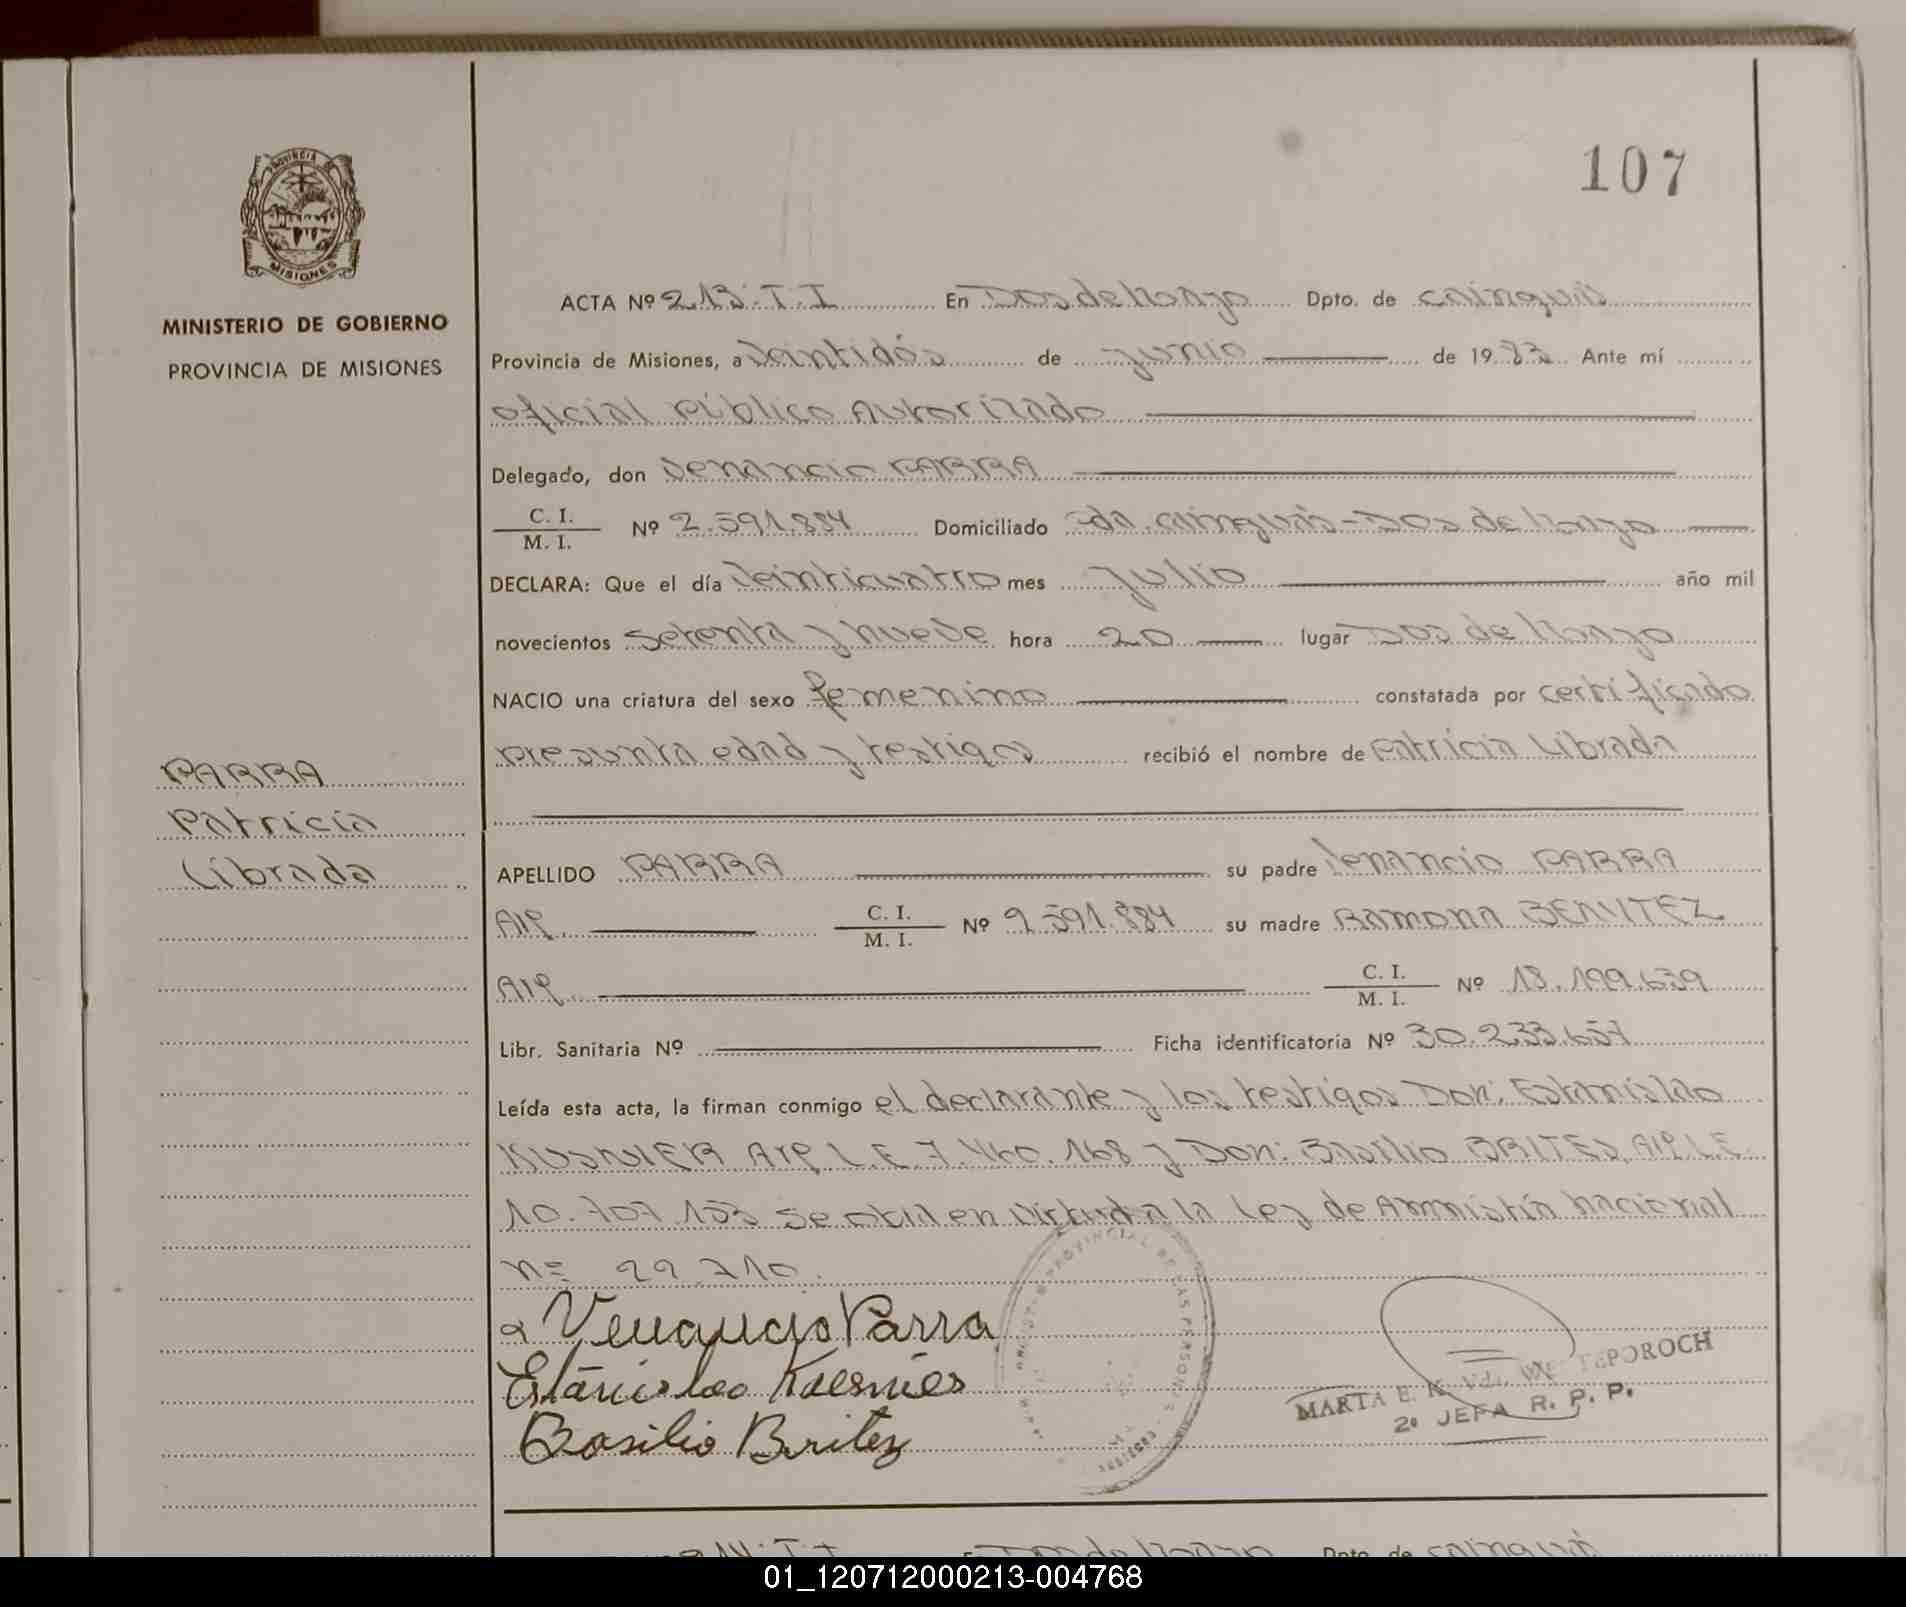 107
PROVINCIA
MISIONES
MINISTERIO DE GOBIERNO
PROVINCIA DE MISIONES
ACTA Nº 213.T.I En Dos de Mayo Dpto. de Cainguás
Provincia de Misiones, a veintidós de junio de 1983 Ante mí
oficial Público Autorizado
Delegado, don Venancio PARRA
C. I. / M. I. Nº 2.591.884 Domiciliado Cainguás - Dos de Mayo
DECLARA: Que el día veinticuatro mes julio año mil
novecientos setenta y nueve hora 20 lugar Dos de Mayo
NACIO una criatura del sexo femenino constatada por certificado
presunta edad y testigos recibió el nombre de Patricia Librada
PARRA
Patricia
Librada
APELLIDO PARRA su padre Venancio PARRA
AIP. C. I. / M. I. Nº 2.591.884 su madre RAMONA BENITEZ
AIP. C. I. / M. I. Nº 18.199.639
Libr. Sanitaria Nº Ficha identificatoria Nº 30.233.657
Leída esta acta, la firman conmigo el declarante y los testigos Don: Estanislao
KUSNIER AIP L.E 7.460.168 y Don: Basilio BRITES, AIP.L.E
10.707.153 Se en virtud a la Ley de Amnistía nacional
Nº 22.710.
Venancio Parra
Estanislao
Basilio Britez
PROVINCIAL DE LAS PERSONAS
MARTA E. Vda. TEPOROCH
2ª JEFA R. P. P.
T.I En Dos de Mayo Dpto. de Cainguás
01_120712000213-004768